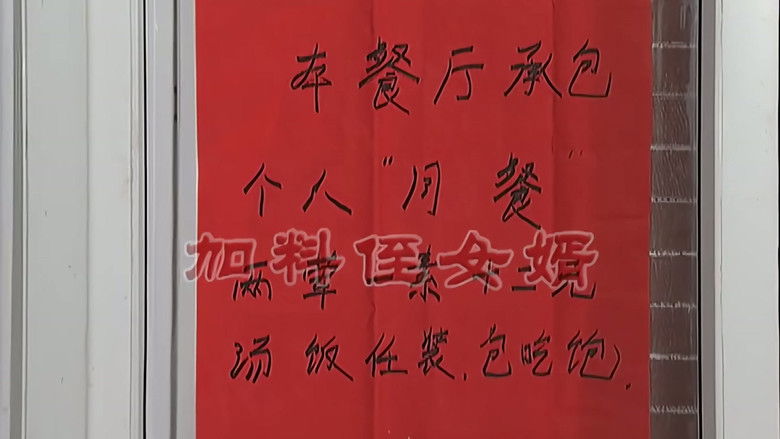 本餐厅承包
个人"月餐"
加料侄女婿
两荤一素十二元
汤饭任装,包吃饱,